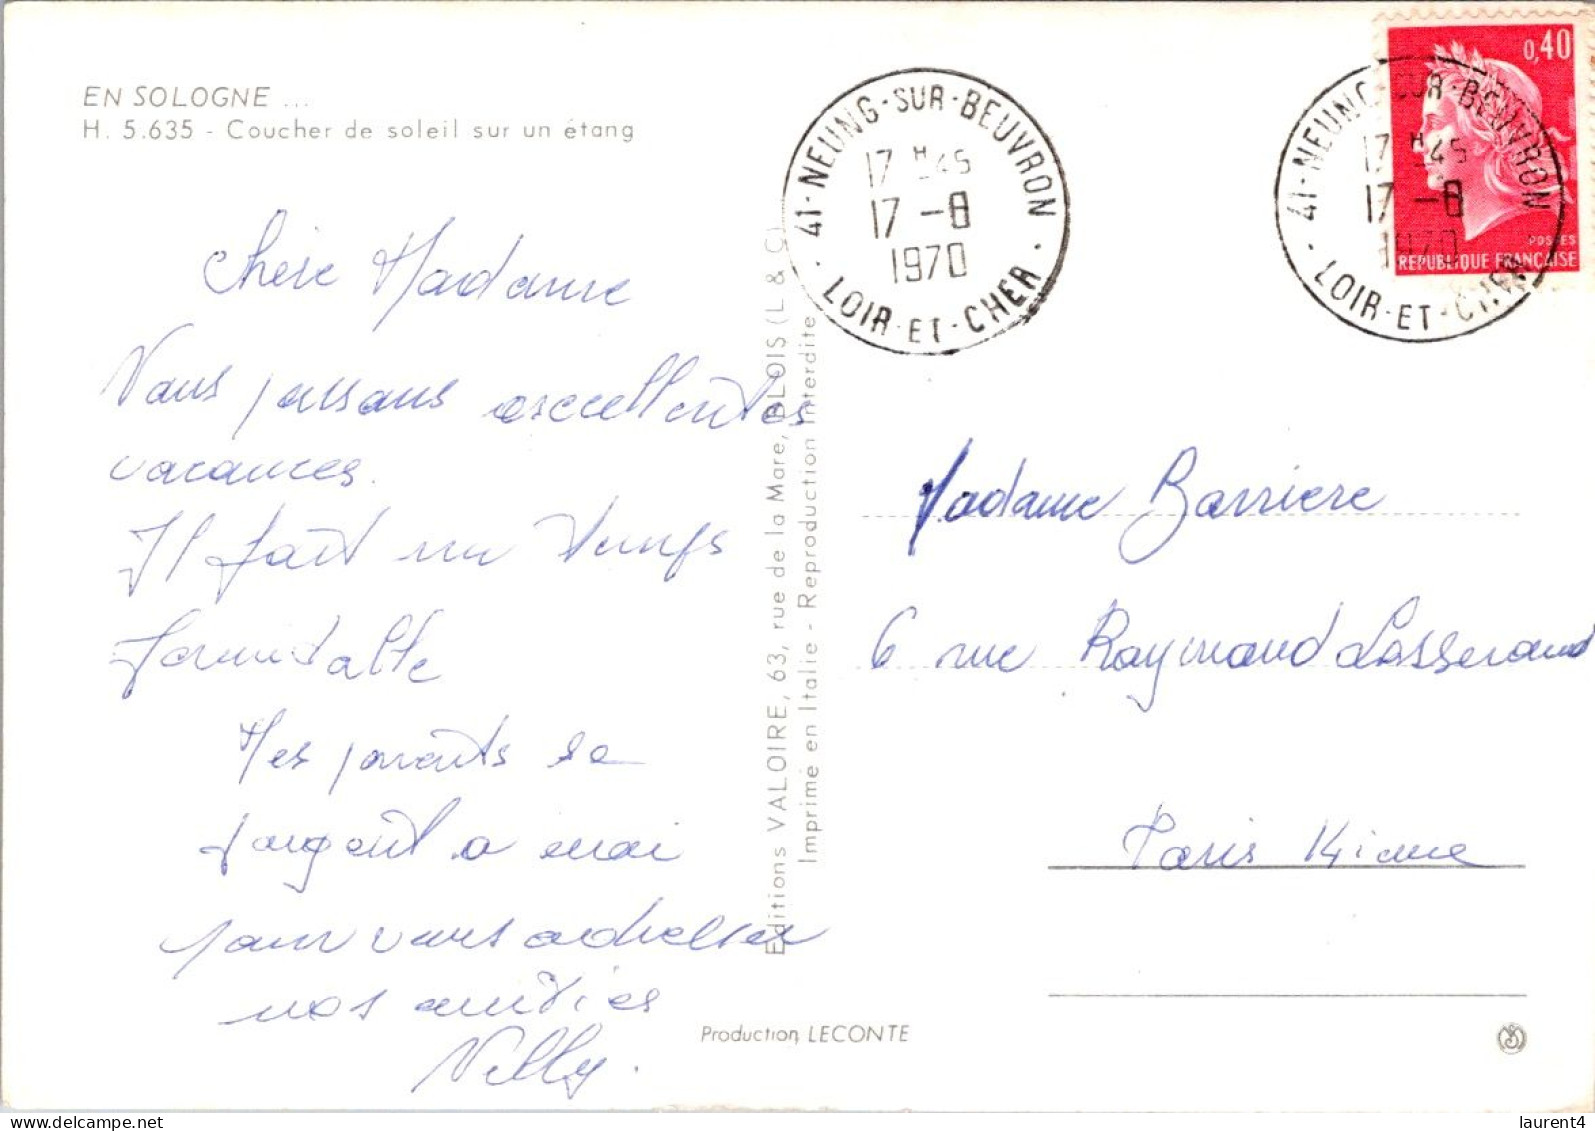 EN SOLOGNE ...
H. 5.635 - Coucher de soleil sur un étang
Chère Madame
Nous passons excellentes
vacances.
Il fait un temps
formidable
Mes parents se
joignent a moi
pour vous adresser
nos amitiés
Nelly.
Editions VALOIRE, 63, rue de la Mare, BLOIS (L & C)
Imprimé en Italie - Reproduction interdite
Production LECONTE
41 - NEUNG-SUR-BEUVRON
17 H 45
17 -8
1970
LOIR-ET-CHER
41 - NEUNG-SUR-BEUVRON
17 H 45
17 -8
1970
LOIR-ET-CHER
0,40
POSTES
REPUBLIQUE FRANÇAISE
Madame Barriere
6 rue Raymond Losserand
Paris 14ieme
laurent4